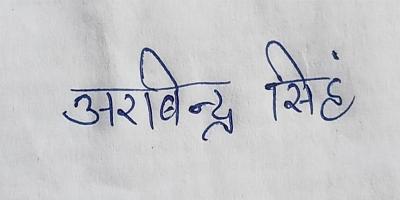 अरविन्द्र सिहं